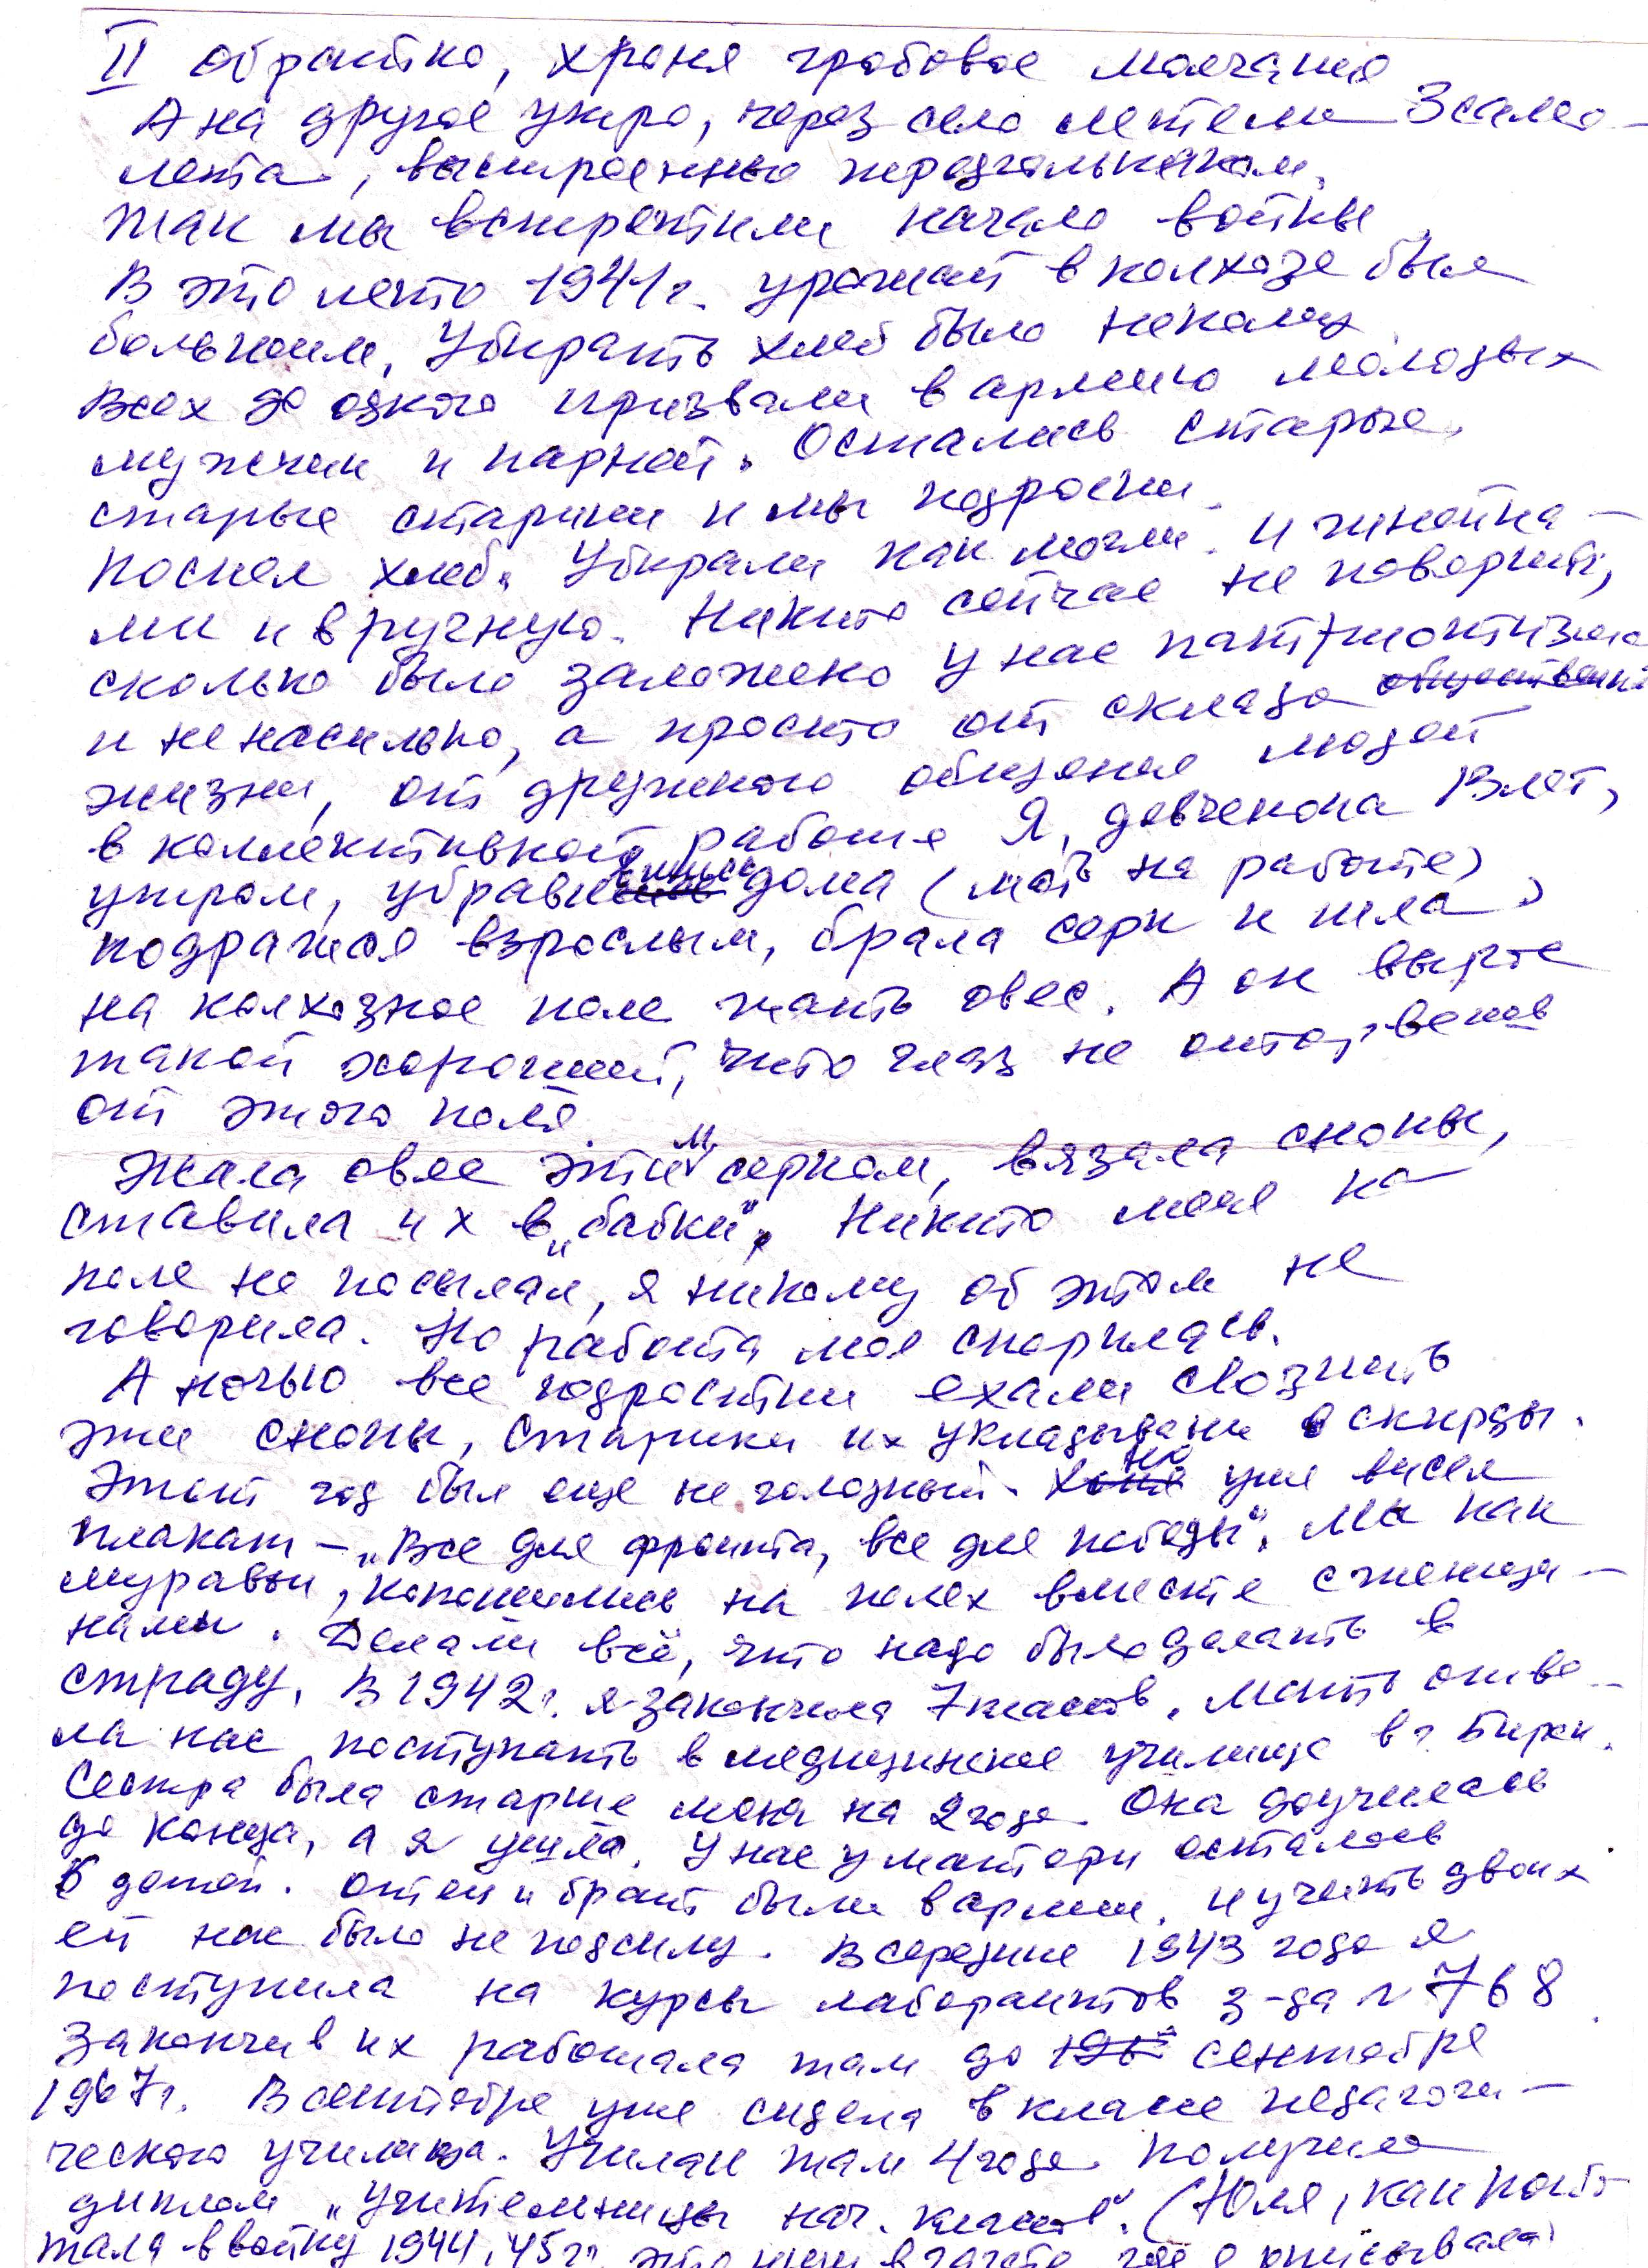 II обратно, храня гробовое молчание
А на другое утро, через село летели 3 само-
лета, выстроенные треугольником.
Так мы встретили начало войны.
В это лето 1941г. урожай в колхозе был
большим. Убирать хлеб было некому.
Всех до одного призвали в армию молодых
мужчин и парней. Остались старые,
старые старики и мы подростки.
Поспел хлеб. Убирали как могли. и жнейка-
ми и вручную. Никто сейчас не поверит,
сколько было заложено у нас патриотизма
и не насильно, а просто от склада общественн
жизни, от дружного общения людей
в коллективной работе Я, девченка 13 лет,
утром, убравшись дома (мать на работе),
подражая взрослым, брала серп и шла
на колхозное поле жать овес. А он вырос
такой хороший, что глаз не
от этого поля.
Жала овес этим серпом, вязала снопы,
ставила их в „бабки“. Никто меня на
поле не посылал, я никому об этом не
говорила. Но работа моя спорилась.
А ночью все подростки ехали свозить
эти снопы, старики их укладывали в скирды.
Этот год был еще не голодный. Хотя но уже висел
плакат – „Все для фронта, все для победы“. Мы как
муравьи, копошились на полях вместе с женщи-
нами. Делали всё, что надо было делать в
страду. В 1942г. я закончила 7 классов. Мать отве-
ла нас поступать в медицинское училище в г. Бирск.
Сестра была старше меня на 2 года. Она доучилась
до конца, а я ушла. У нас у матери осталось
6 детей. Отец и брат были в армии. и учить двоих
ей нас было не подсилу. В середине 1943 года я
поступила на курсы лаборантов з-да № 768.
Закончив их работала там до сентября
1947г. В сентябре уже сидела в классе педагоги-
ческого училища. Училась там 4 года. Получила
диплом „Учительницы нач. классов“. (Юля, как рабо-
тала в войну 1944, 45 гг. это в газете, где я описывала